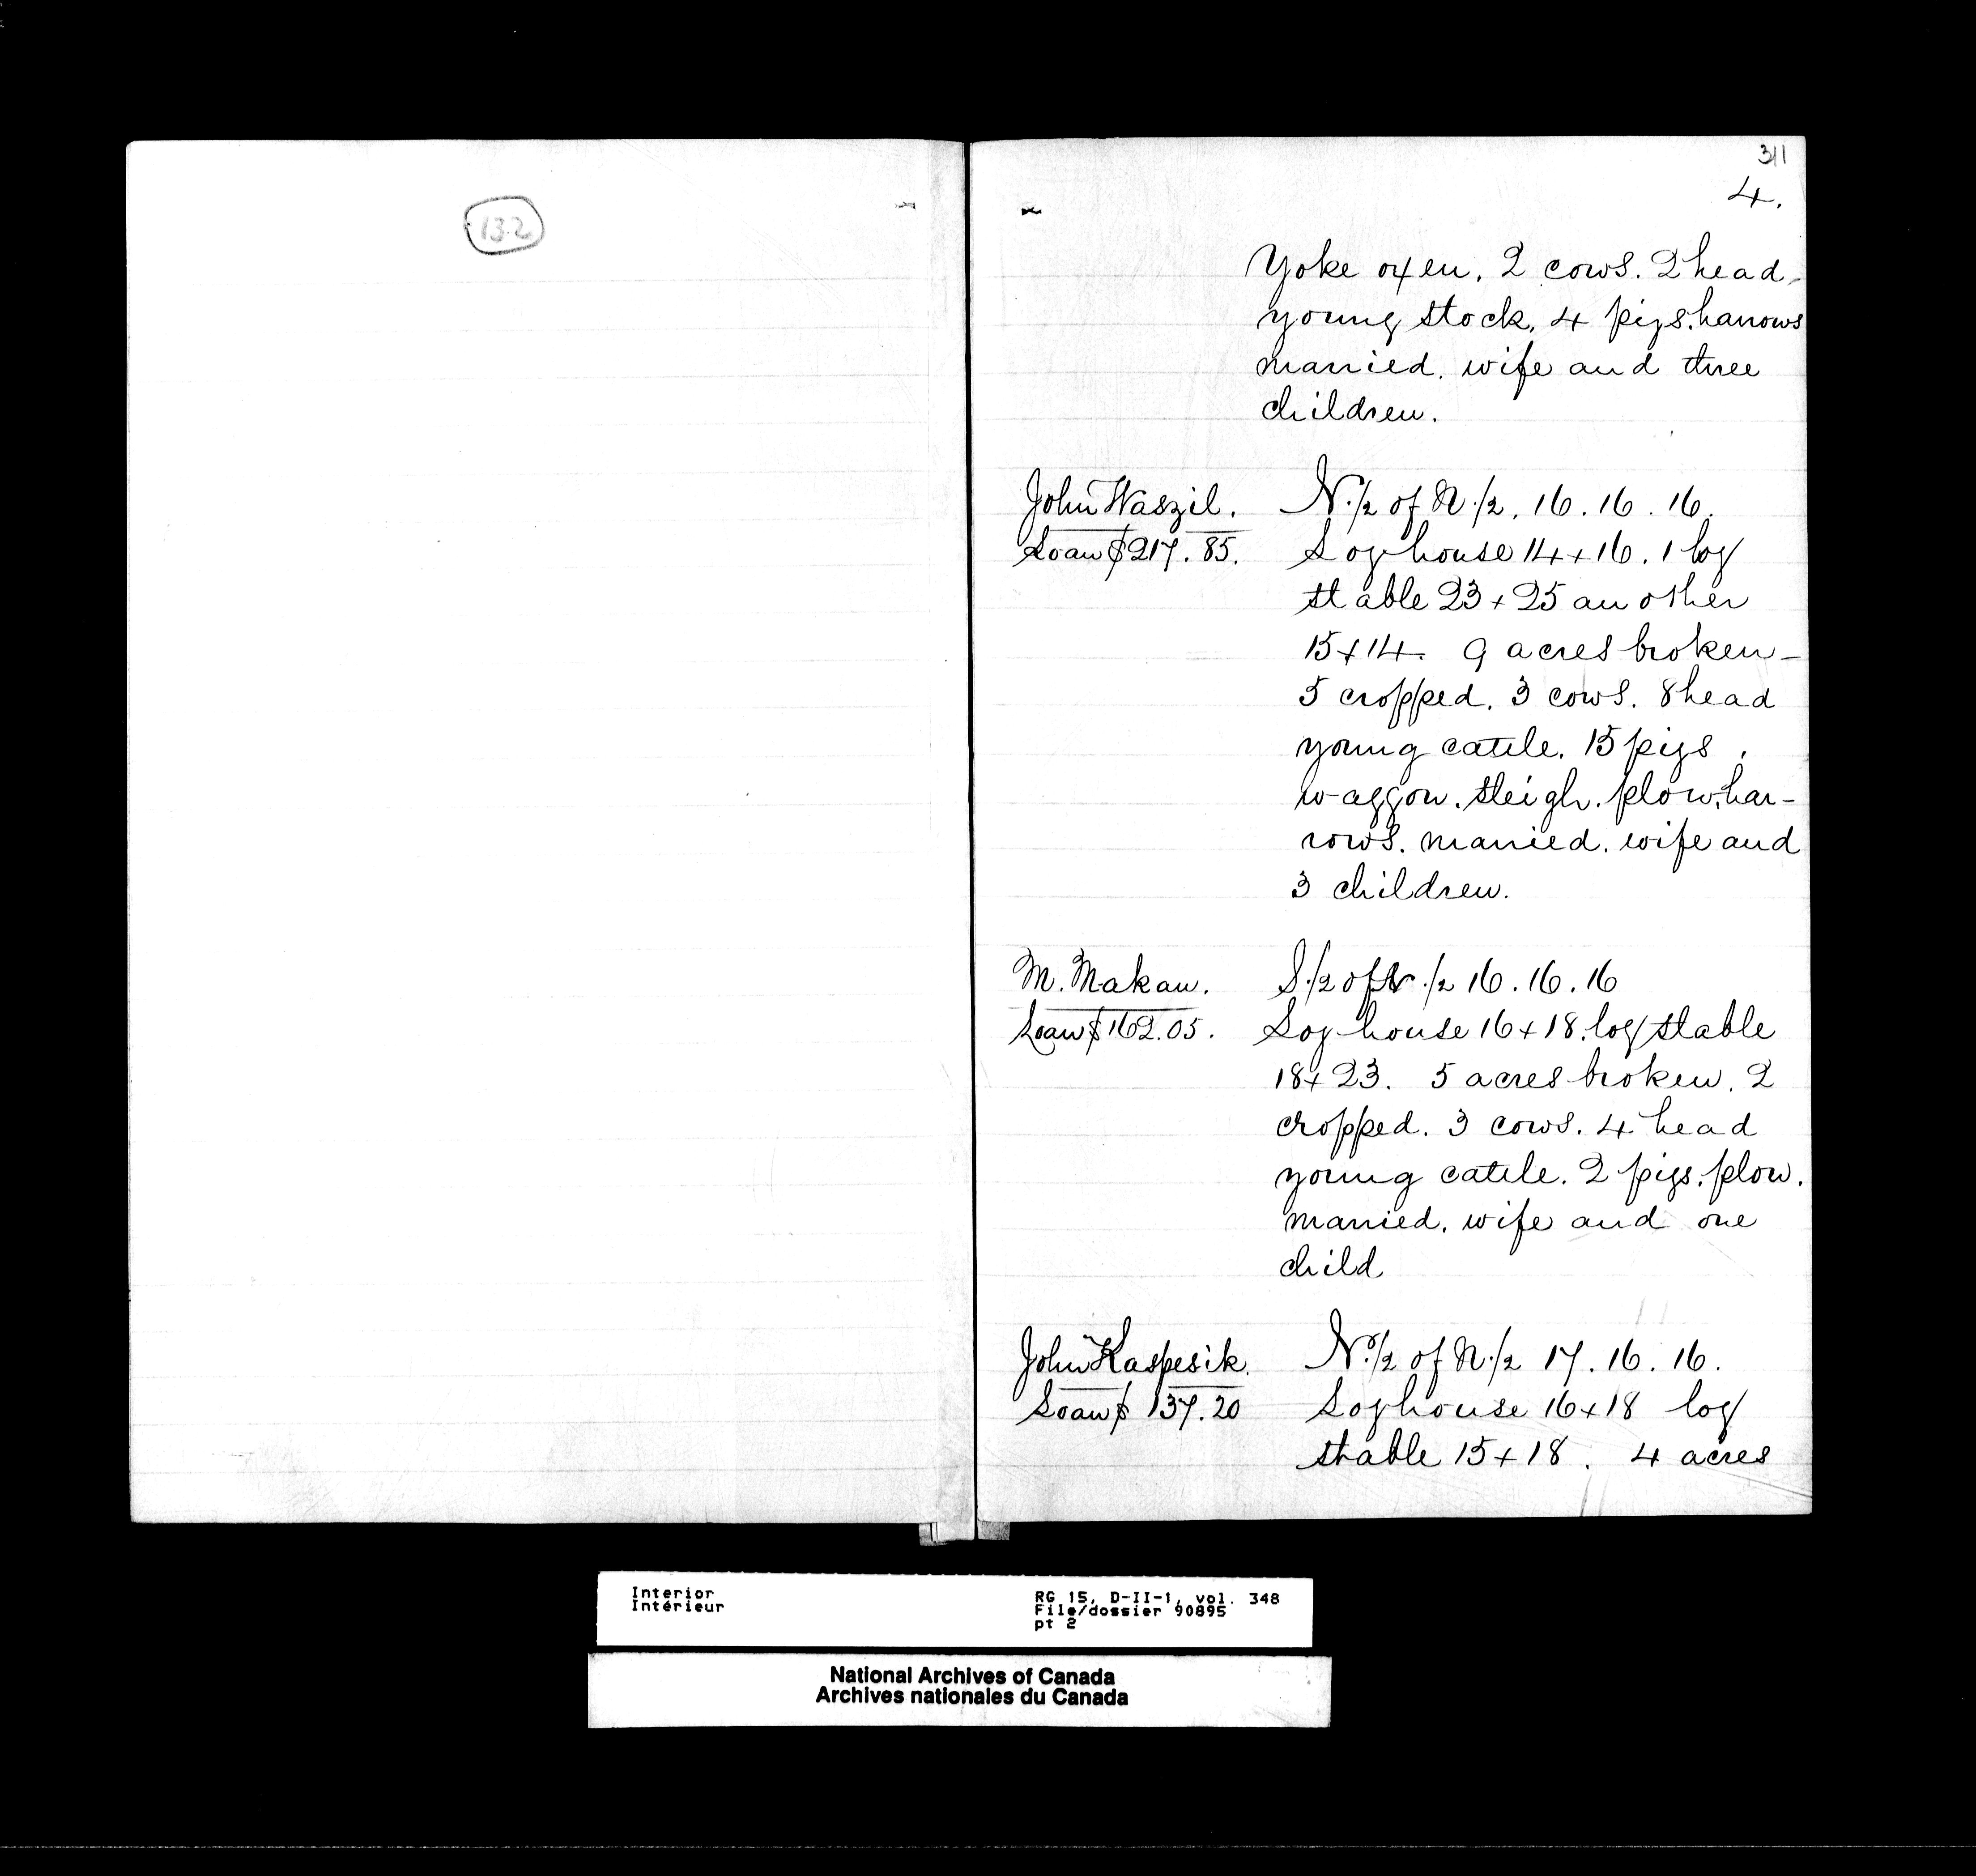 132
311
4.
Yoke oxen. 2 cows. 2 head
young stock. 4 pigs. harrows
married. wife and three
children.
John Waszil. N.1/2 of N.1/2. 16. 16. 16.
Loan $217.85. Log house 14x16. 1 log
stable 23x25 an other
15x14. 9 acres broken-
5 cropped. 3 cows. 8 head
young cattle. 15 pigs.
waggon. sleigh. plow. har-
rows. married. wife and
3 children.
M. Makan. S.1/2 of N.1/2 16. 16. 16
Loan $162.05. Log house 16x18. log stable
18x23. 5 acres broken. 2
cropped. 3 cows. 4 head
young cattle. 2 pigs. plow.
married. wife and one
child
John Kaspesik. N.1/2 of N.1/2 17. 16. 16.
Loan $ 137.20 Log house 16x18 log
stable 15x18. 4 acres
Interior RG 15, D-II-1, vol. 348
Intérieur File/dossier 90895
pt 2
National Archives of Canada
Archives nationales du Canada